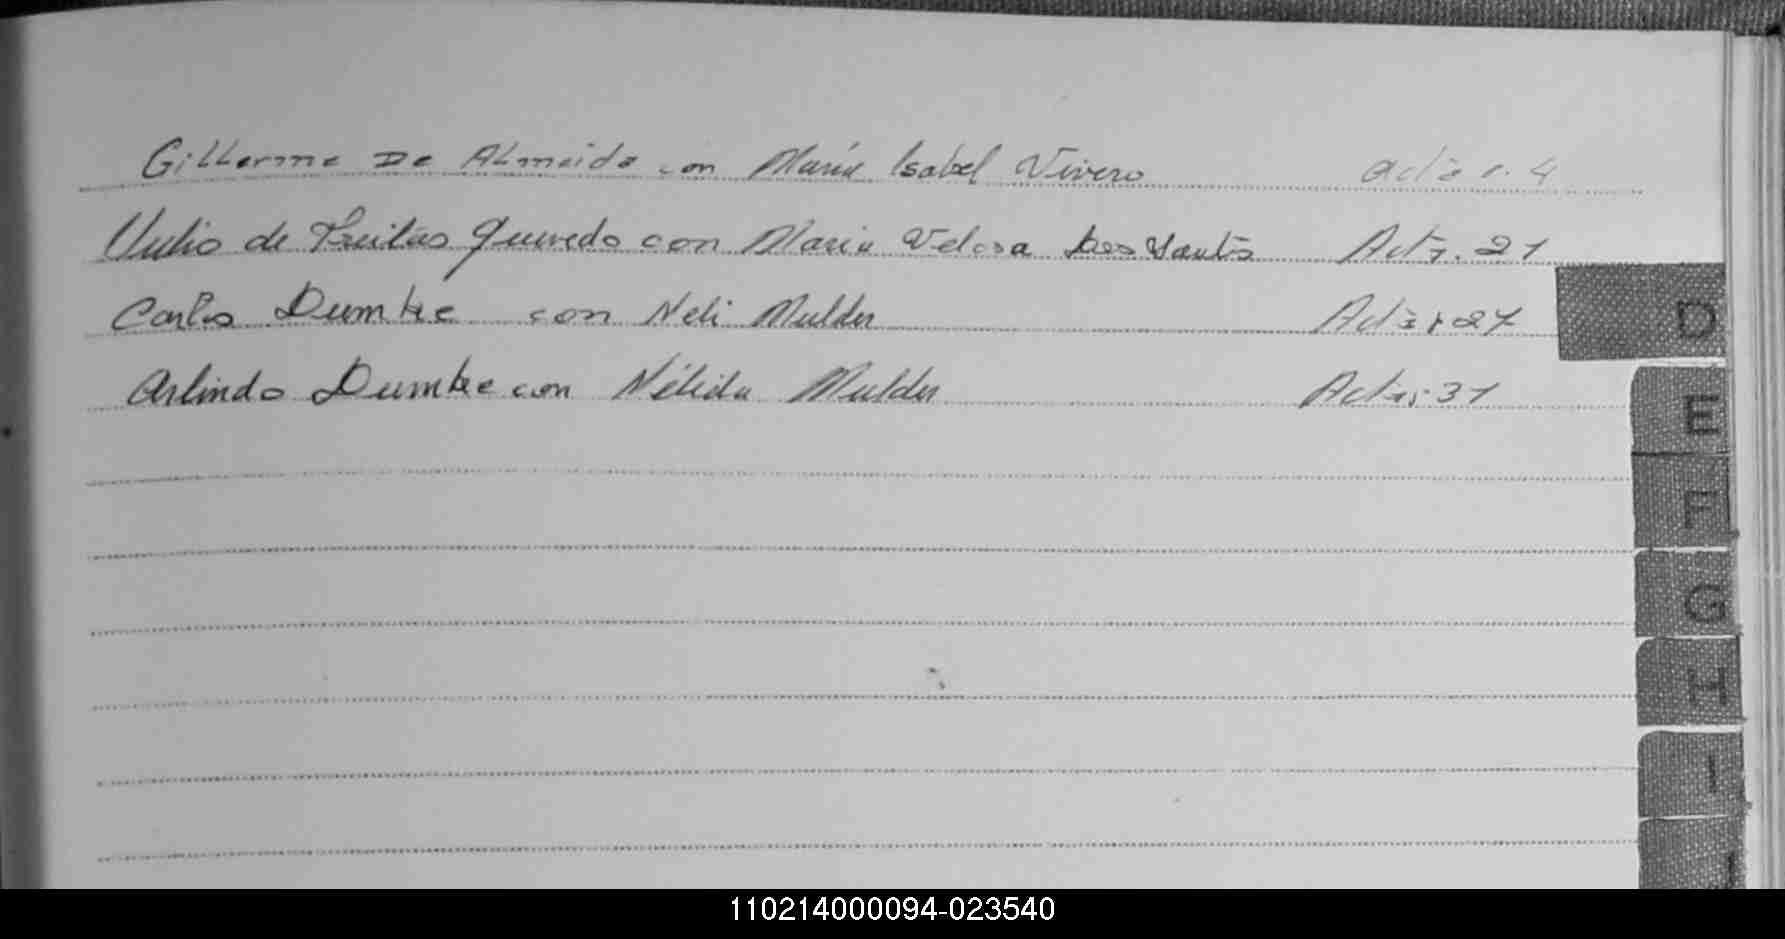 Gillerme De Almeida con María Isabel Vivero acta n. 4
de Freitas Quevedo con Maria Velosa Dos Santos Acta. 21
Carlos Dumke con Neli Mulder Acta: 27
Arlindo Dumke con Nélida Mulder Acta: 31
D
E
F
G
H
I
J
110214000094-023540